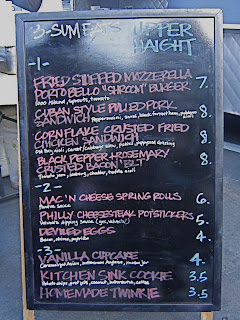 3-SUM EATS UPPER HAIGHT
-1-
FRIED STUFFED MOZZERELLA
PORTOBELLO "SHROOM" BURGER 7.
1000 Island, sprouts, tomato
CUBAN STYLE PULLED PORK
SANDWICH 8.
CORNFLAKE CRUSTED FRIED
CHICKEN SANDWICH 8.
BLACK PEPPER + ROSEMARY
CRUSTED BACON BLT 8.
-2-
MAC 'N CHEESE SPRING ROLLS 6.
PHILLY CHEESESTEAK POTSTICKERS 5.
DEVILED EGGS 4.
Bacon, chive, paprika
-3-
VANILLA CUPCAKE 4.
KITCHEN SINK COOKIE 3.5
HOMEMADE TWINKIE 3.5